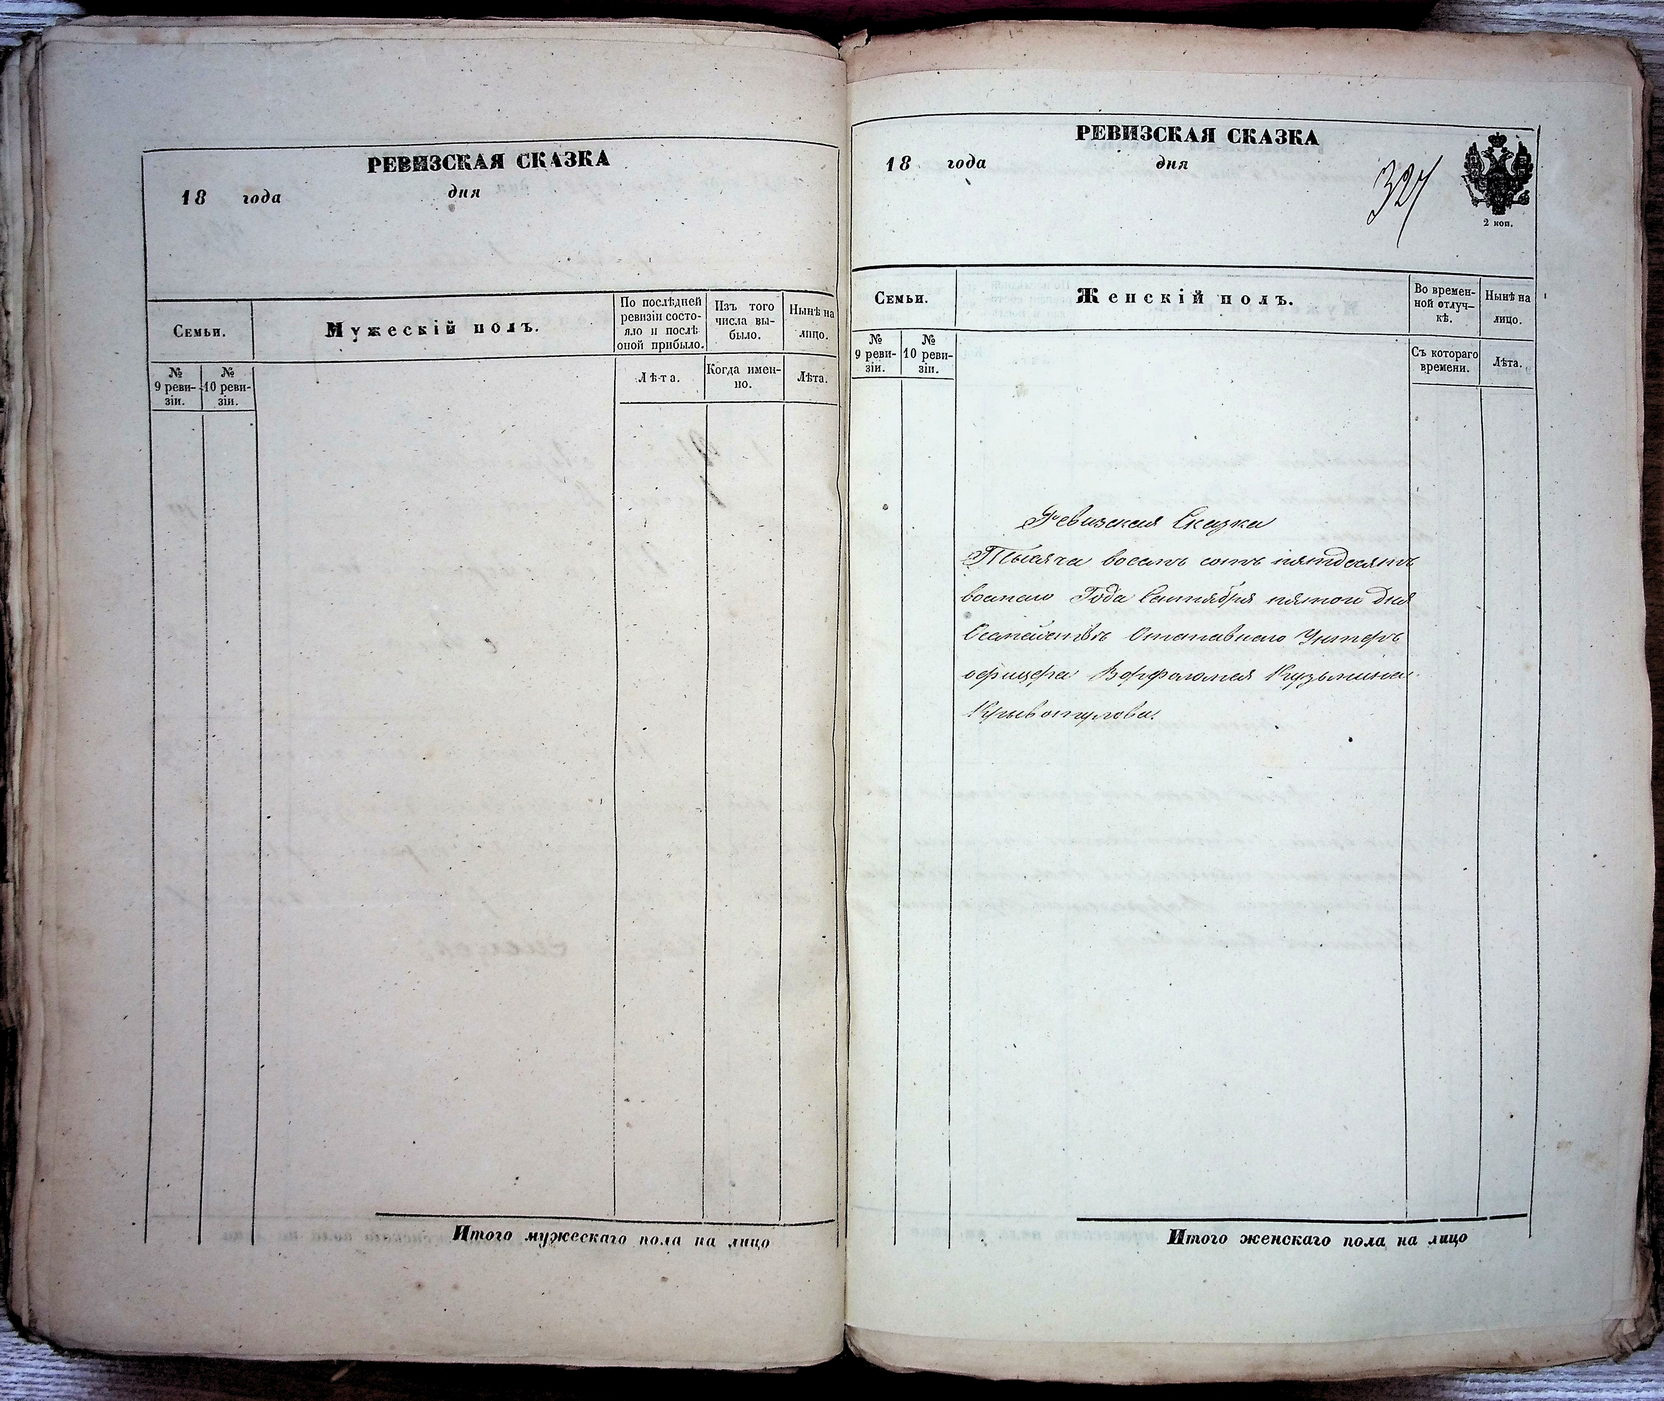 РЕВИЗСКАЯ СКАЗКА
18 года дня
Семьи.
Мужескій полъ.
По послѣдней ревизіи состояло и послѣ оной прибыло.
Изъ того числа выбыло.
Нынѣ на лицо.
№ 9 ревизіи.
№ 10 ревизіи.
Лѣта.
Когда именно.
Лѣта.
Итого мужескаго пола на лицо
РЕВИЗСКАЯ СКАЗКА
18 года дня
327
2 коп.
Семьи.
Женскій полъ.
Во временной отлучкѣ.
Нынѣ на лицо.
№ 9 ревизіи.
№ 10 ревизіи.
Съ котораго времени.
Лѣта.
Ревизская Сказка
Тысяча восемь сотъ пятдесятъ
восмаго Года Сентября пятого дня
О семействѣ Отставнаго Унтеръ
офицера Варфоломея Кузьмина
Итого женскаго пола на лицо